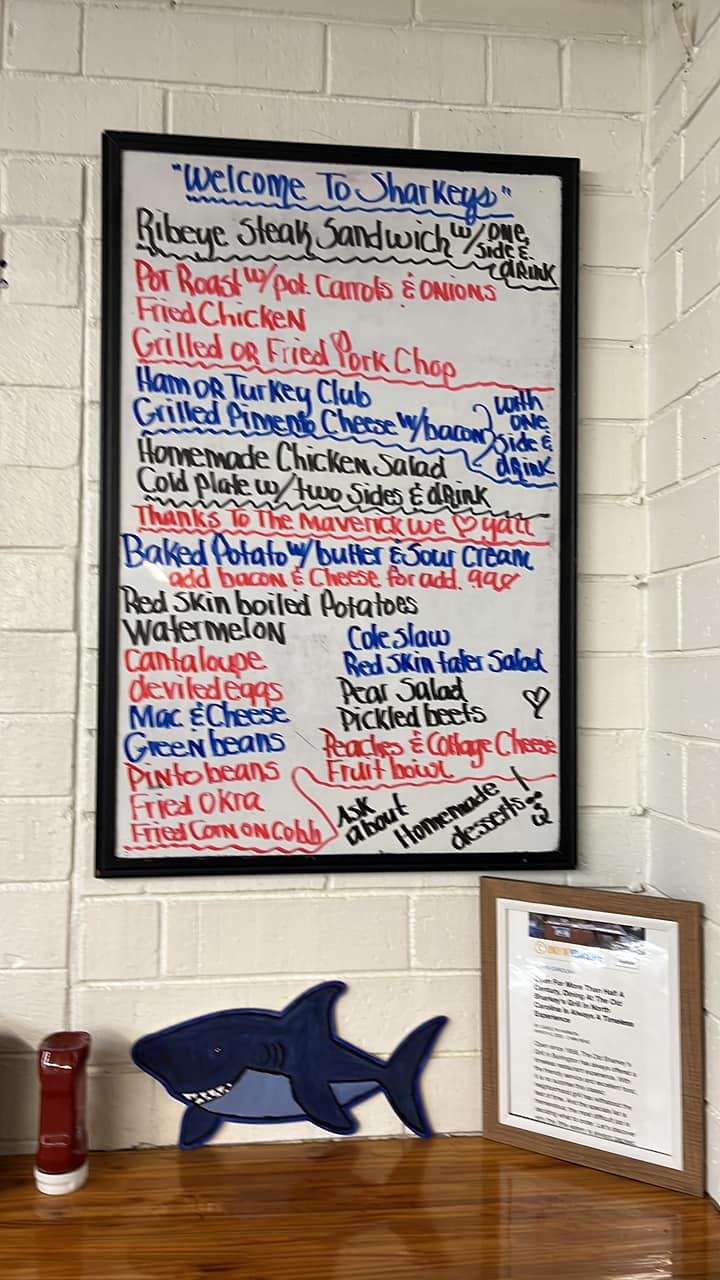 "Welcome To Sharkeys"
Ribeye Steak Sandwich w/ one side & drink
Pot Roast w/ pot. Carrots & Onions
Fried Chicken
Grilled OR Fried Pork Chop
Ham OR Turkey Club
Grilled Pimento Cheese w/bacon
with
one
side &
drink
Homemade Chicken Salad
Cold plate w/ two sides & drink
Thanks To The Maverick we ♡ yall
Baked Potato w/ butter & Sour Cream
add bacon & Cheese for add. 99¢
Red Skin boiled Potatoes
Watermelon
Cantaloupe
deviled eggs
Mac & Cheese
Green beans
Pinto beans
Fried Okra
Fried Corn on Cobb
Coleslaw
Red Skin tater Salad
Pear Salad
Pickled beets
Peaches & Cottage Cheese
Fruit bowl
Ask
about
Homemade
desserts!
Open For More Than Half A
Century, Dining At The Old
Sharkey's Grill In North
Carolina Is Always A Timeless
Experience